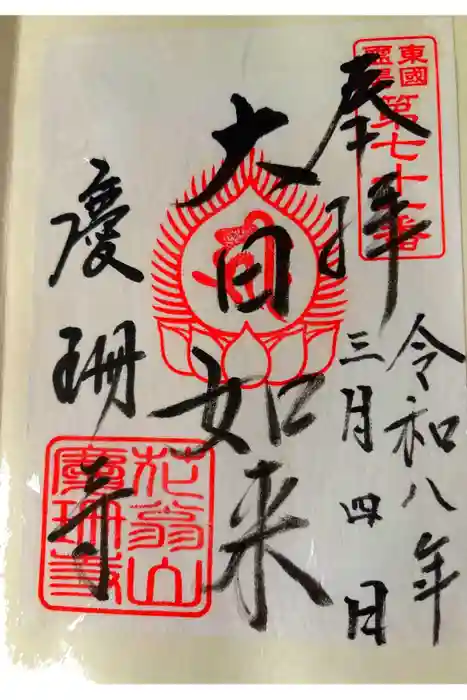 東國
靈場
奉拝
令和八年
三月四日
大日如来
慶珊寺
花翁山
慶珊寺